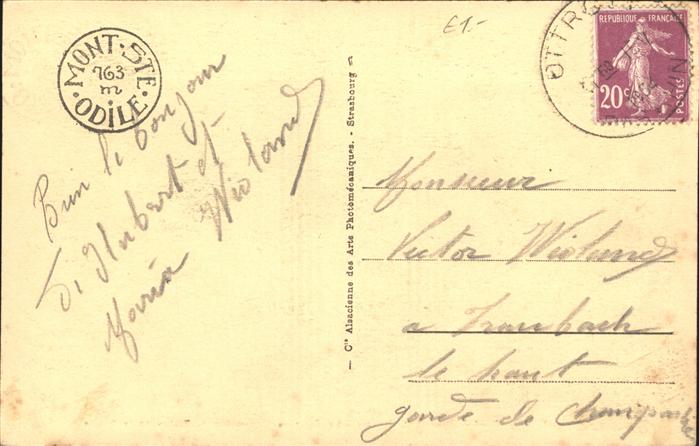 MONT-STE
763
m
ODILE
E1.-
OTTRO
REPUBLIQUE FRANÇAISE
20c
POSTES
Bien le bonjour
Hubert et
Maria Wioland
Cie Alsacienne des Arts Photomécaniques. - Strasbourg
Monsieur
Victor Wioland
a Traubach
le haut
garde de